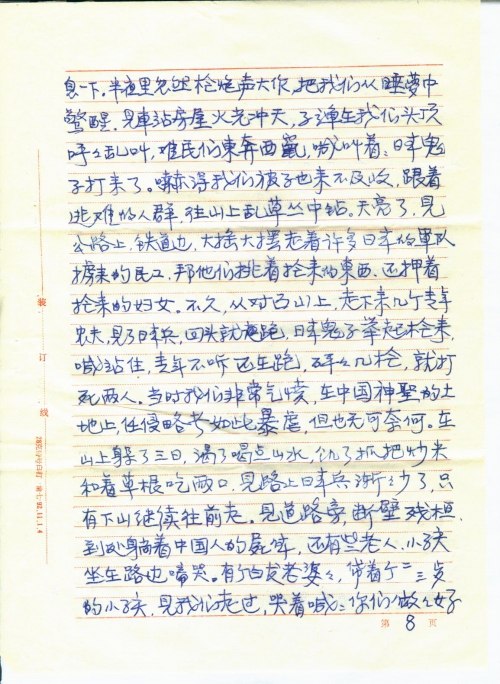 息一下。半夜里忽然枪炮声大作,把我们从睡梦中
惊醒。见車站房屋火光冲天,子弹在我们头顶
呼々乱叫,难民们東奔西竄,喊叫着:日本鬼
子打来了。嚇得我们被子也来不及收,跟着
逃难的人群往山上乱草丛中钻。天亮了,见
公路上,铁道边,大摇大摆走着许多日本的軍队
掳来的民工,帮他们挑着抢来的東西.还押着
抢来的妇女。不久,从对面山上,走下来几个青年
农夫,见了日本兵,回头就跑,日本鬼子举起枪来,
喊站住,青年不听还在跑,砰々几枪,就打
死两人。当时我们非常气愤,在中国神聖的土
地上,任侵略者如此暴虐,但也无可奈何。在
山上躲了三日,渴了喝点山水,饥了抓把炒米
和着草根吃两口.见路上日本兵渐々少了,只
有下山继续往前走。见道路旁,断壁残桓.
到处躺着中国人的屍体,还有些老人.小孩
坐在路边啼哭。有个白发老婆々,带着个二三岁
的小孩,见我们走过,哭着喊:你们做々好
装
订
线
第 8 页